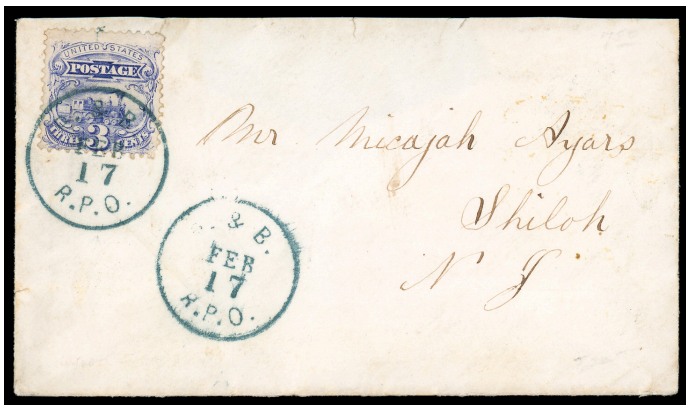 UNITED STATES
POSTAGE
THREE 3 CENTS
FEB
17
R.P.O.
& B.
FEB
17
R.P.O.
Mr Micajah Ayars
Shiloh
N J